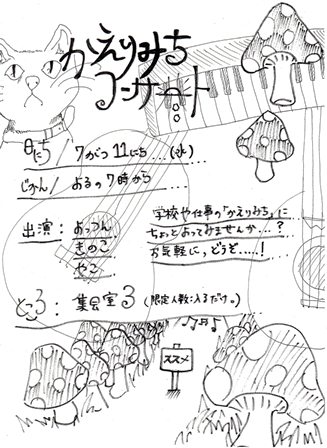 かえりみち
コンサート
日にち/ 7がつ 11にち...(水)
じかん/ よるの7時から...
出演: よっつん
きのこ
やこ
学校や仕事の「かえりみち」に
ちょっとよってみませんか...?
お気軽に、どうぞ.....!
ところ: 集会室3 (限定人数:入るだけ。)
ススメ